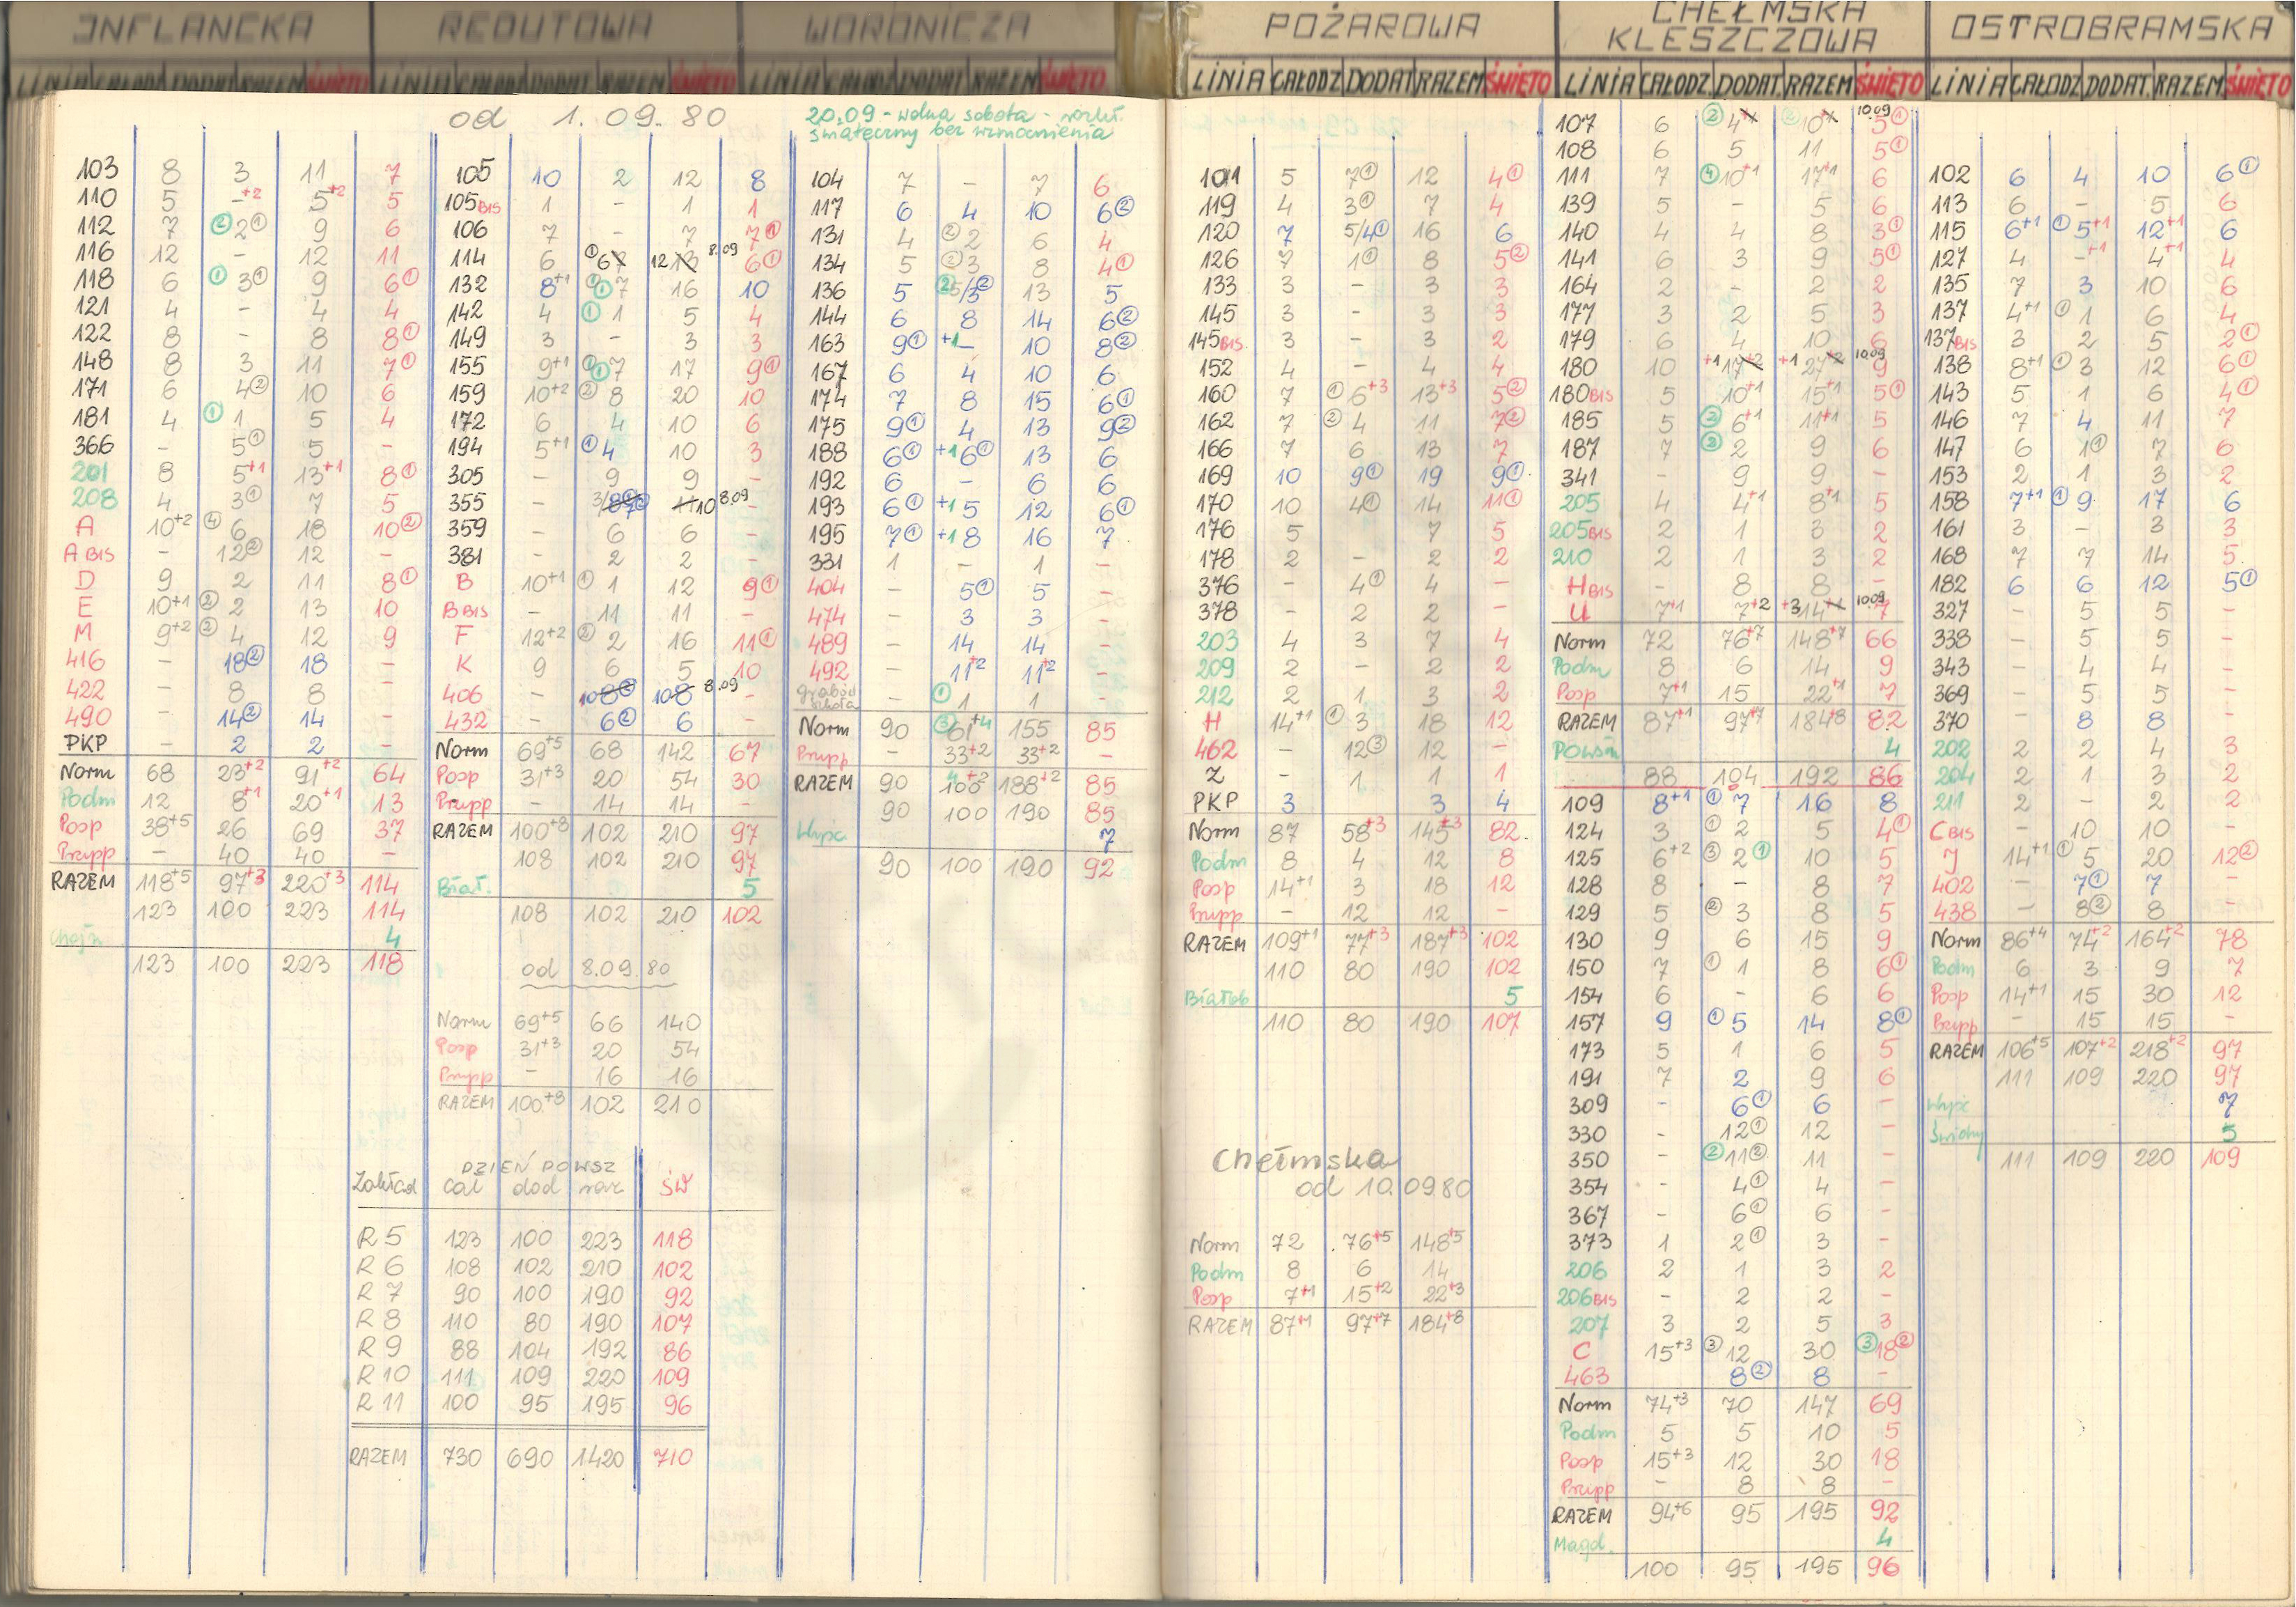 INFLANCKA
LINIA CAŁODZ DODAT RAZEM ŚWIĘTO
103 8 3 11 7
110 5 -+2 5+2 5
112 7 ②2① 9 6
116 12 - 12 11
118 6 ①3① 9 6①
121 4 - 4 4
122 8 - 8 8①
148 8 3 11 7①
171 6 4② 10 6
181 4 ①1 5 4
366 - 5① 5 -
201 8 5+1 13+1 8①
208 4 3① 7 5
A 10+2 ④6 18 10②
A BIS - 12② 12 -
D 9 2 11 8①
E 10+1 ②2 13 10
M 9+2 ②4 12 9
416 - 18② 18 -
422 - 8 8 -
490 - 14② 14 -
PKP - 2 2 -
Norm 68 23+2 91+2 64
Podm 12 8+1 20+1 13
Posp 38+5 26 69 37
Przpp - 40 40 -
RAZEM 118+5 97+3 220+3 114
123 100 223 114
Chojn 4
123 100 223 118
REDUTOWA
LINIA CAŁODZ DODAT RAZEM ŚWIĘTO
od 1.09.80
105 10 2 12 8
105BIS 1 - 1 1
106 7 - 7 7①
114 6 ①67 12 13 8.09 6①
132 8+1 ①①7 16 10
142 4 ①1 5 4
149 3 - 3 3
155 9+1 ①①7 17 9①
159 10+2 ②8 20 10
172 6 4 10 6
194 5+1 ①4 10 3
305 - 9 9 -
355 - 11 10 8.09 -
359 - 6 6 -
381 - 2 2 -
B 10+1 ①1 12 9①
B BIS - 11 11 -
F 12+2 ②2 16 11①
K 9 6 5 10
406 - 108② 108 8.09 -
432 - 6② 6 -
Norm 69+5 68 142 67
Posp 31+3 20 54 30
Przpp - 14 14 -
RAZEM 100+8 102 210 97
108 102 210 97
Biał. 5
108 102 210 102
od 8.09.80
Norm 69+5 66 140
Posp 31+3 20 54
Przpp - 16 16
RAZEM 100+8 102 210
DZIEŃ POWSZ
Zakład cał dod raz ŚW
R 5 123 100 223 118
R 6 108 102 210 102
R 7 90 100 190 92
R 8 110 80 190 107
R 9 88 104 192 86
R 10 111 109 220 109
R 11 100 95 195 96
RAZEM 730 690 1420 710
WORONICZA
LINIA CAŁODZ DODAT RAZEM ŚWIĘTO
20.09 - wolna sobota - rozkł.
świąteczny bez wzmocnienia
104 7 - 7 6
117 6 4 10 6②
131 4 ②2 6 4
134 5 ②3 8 4①
136 5 ②5/3② 13 5
144 6 8 14 6②
163 9① +1- 10 8②
167 6 4 10 6
174 7 8 15 6①
175 9① 4 13 9②
188 6① +16① 13 6
192 6 - 6 6
193 6① +15 12 6①
195 7① +18 16 7
331 1 - 1 -
404 - 5① 5 -
474 - 3 3 -
489 - 14 14 -
492 - 11+2 11+2 -
- ①1 1 -
Norm 90 ③61+4 155 85
Przpp - 33+2 33+2 -
RAZEM 90 100+2 188+2 85
90 100 190 85
Wyśc 7
90 100 190 92
POŻAROWA
LINIA CAŁODZ DODAT RAZEM ŚWIĘTO
101 5 7① 12 4①
119 4 3① 7 4
120 7 5/4① 16 6
126 7 1① 8 5②
133 3 - 3 3
145 3 - 3 3
145BIS 3 - 3 2
152 4 - 4 4
160 7 ①6+3 13+3 5②
162 7 ②4 11 7②
166 7 6 13 7
169 10 9① 19 9①
170 10 4① 14 11①
176 5 7 5
178 2 - 2 2
376 - 4① 4 -
378 - 2 2 -
203 4 3 7 4
209 2 - 2 2
212 2 1 3 2
H 14+1 ①3 18 12
462 - 12③ 12 -
Z - 1 1 1
PKP 3 3 4
Norm 87 58+3 145+3 82
Podm 8 4 12 8
Posp 14+1 3 18 12
Przpp - 12 12 -
RAZEM 109+1 77+3 187+3 102
110 80 190 102
Białob 5
110 80 190 107
Chełmska
od 10.09.80
Norm 72 76+5 148+5
Podm 8 6 14
Posp 7+1 15+2 22+3
RAZEM 87+1 97+7 184+8
CHEŁMSKA
KLESZCZOWA
LINIA CAŁODZ DODAT RAZEM ŚWIĘTO
107 6 ②4 ②10 10.09 5①
108 6 5 11 5①
111 7 ④10+1 17+1 6
139 5 - 5 6
140 4 4 8 3①
141 6 3 9 5①
164 2 - 2 2
177 3 2 5 3
179 6 4 10 6
180 10 +117+2 +127+2 10.09 9
180BIS 5 10+1 15+1 5①
185 5 ②6+1 11+1 5
187 7 ②2 9 6
341 - 9 9 -
205 4 4+1 8+1 5
205BIS 2 1 3 2
210 2 1 3 2
H BIS - 8 8 -
U 7+1 7+2 +314+1 10.09 7
Norm 72 76+7 148+7 66
Podm 8 6 14 9
Posp 7+1 15 22+1 7
RAZEM 87+1 97+7 184+8 82
Powsin 4
88 104 192 86
109 8+1 ①7 16 8
124 3 ①2 5 4①
125 6+2 ③2① 10 5
128 8 - 8 7
129 5 ②3 8 5
130 9 6 15 9
150 7 ①1 8 6①
154 6 - 6 6
157 9 ①5 14 8①
173 5 1 6 5
191 7 2 9 6
309 - 6① 6 -
330 - 12① 12 -
350 - ②11② 11 -
354 - 4① 4 -
367 - 6① 6 -
373 1 2① 3 -
206 2 1 3 2
206BIS - 2 2 -
207 3 2 5 3
C 15+3 ③12 30 ③18②
463 8② 8 -
Norm 74+3 70 147 69
Podm 5 5 10 5
Posp 15+3 12 30 18
Przpp - 8 8 -
RAZEM 94+6 95 195 92
Magd. 4
100 95 195 96
OSTROBRAMSKA
LINIA CAŁODZ DODAT RAZEM ŚWIĘTO
102 6 4 10 6①
113 6 - 5 6
115 6+1 ①5+1 12+1 6
127 4 -+1 4+1 4
135 7 3 10 6
137 4+1 ①1 6 4
137BIS 3 2 5 2①
138 8+1 ①3 12 6①
143 5 1 6 4①
146 7 4 11 7
147 6 1① 7 6
153 2 1 3 2
158 7+1 ①9 17 6
161 3 - 3 3
168 7 7 14 5
182 6 6 12 5①
327 - 5 5 -
338 - 5 5 -
343 - 4 4 -
369 - 5 5 -
370 - 8 8 -
202 2 2 4 3
204 2 1 3 2
211 2 - 2 2
C BIS - 10 10 -
J 14+1 ①5 20 12②
402 - 7① 7 -
438 - 8② 8 -
Norm 86+4 74+2 164+2 78
Podm 6 3 9 7
Posp 14+1 15 30 12
Przpp - 15 15 -
RAZEM 106+5 107+2 218+2 97
111 109 220 97
Wyśc 7
Świdry 5
111 109 220 109